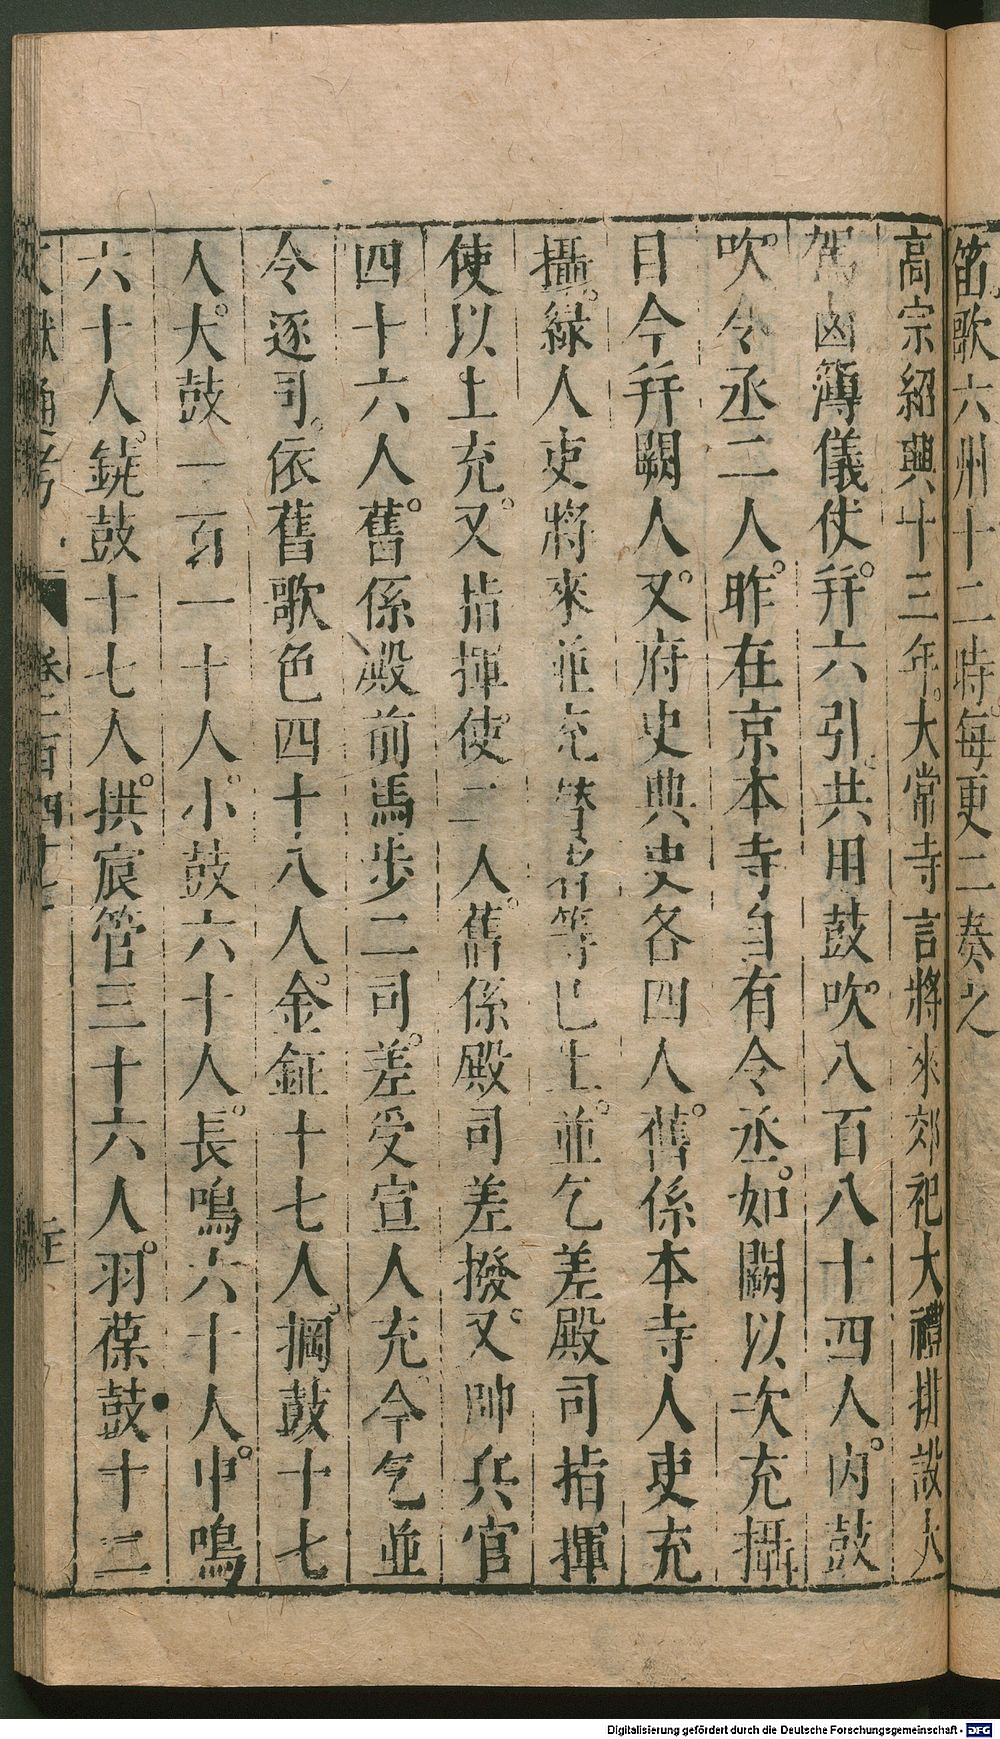 笛歌六州十二時每更二奏之
高宗紹興十三年大常寺言將來郊祀大禮排設大
駕鹵簿儀仗并六引共用鼓吹八百八十四人內鼓
吹令丞二人昨在京本寺自有令丞如闕以次充攝
目今并闕人又府史典史各四人舊係本寺人吏充
攝緣人吏將來並充等已上並乞差殿司指揮
使以上充又指揮使二人舊係殿司差撥又帥兵官
四十六人舊係殿前馬步二司差受宣人充今乞並
令逐司依舊歌色四十八人金鉦十七人掆鼓十七
人大鼓一百一十人小鼓六十人長鳴六十人中鳴
六十人鐃鼓十七人拱宸管三十六人羽葆鼓十二
文獻通考 卷一百四十七
Digitalisierung gefördert durch die Deutsche Forschungsgemeinschaft - DFG